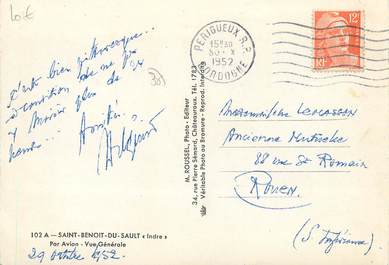 PERIGUEUX R.P.
15H30
30-X
1952
DORDOGNE
12F
RF
C'est bien pittoresque...
à condition de ne
y plus de
heures...
Amitiés
M. ROUSSEL, Photo - Editeur
34, rue Pierre Sémard, Châteauroux, Tél. 1783
Véritable Photo au Bromure - Reprod. Interdite
Mademoiselle
Ancienne
88 rue St Romain
Rouen
(S. Inférieure)
102 A — SAINT-BENOIT-DU-SAULT « Indre »
Par Avion - Vue Générale
29 octobre 1952.